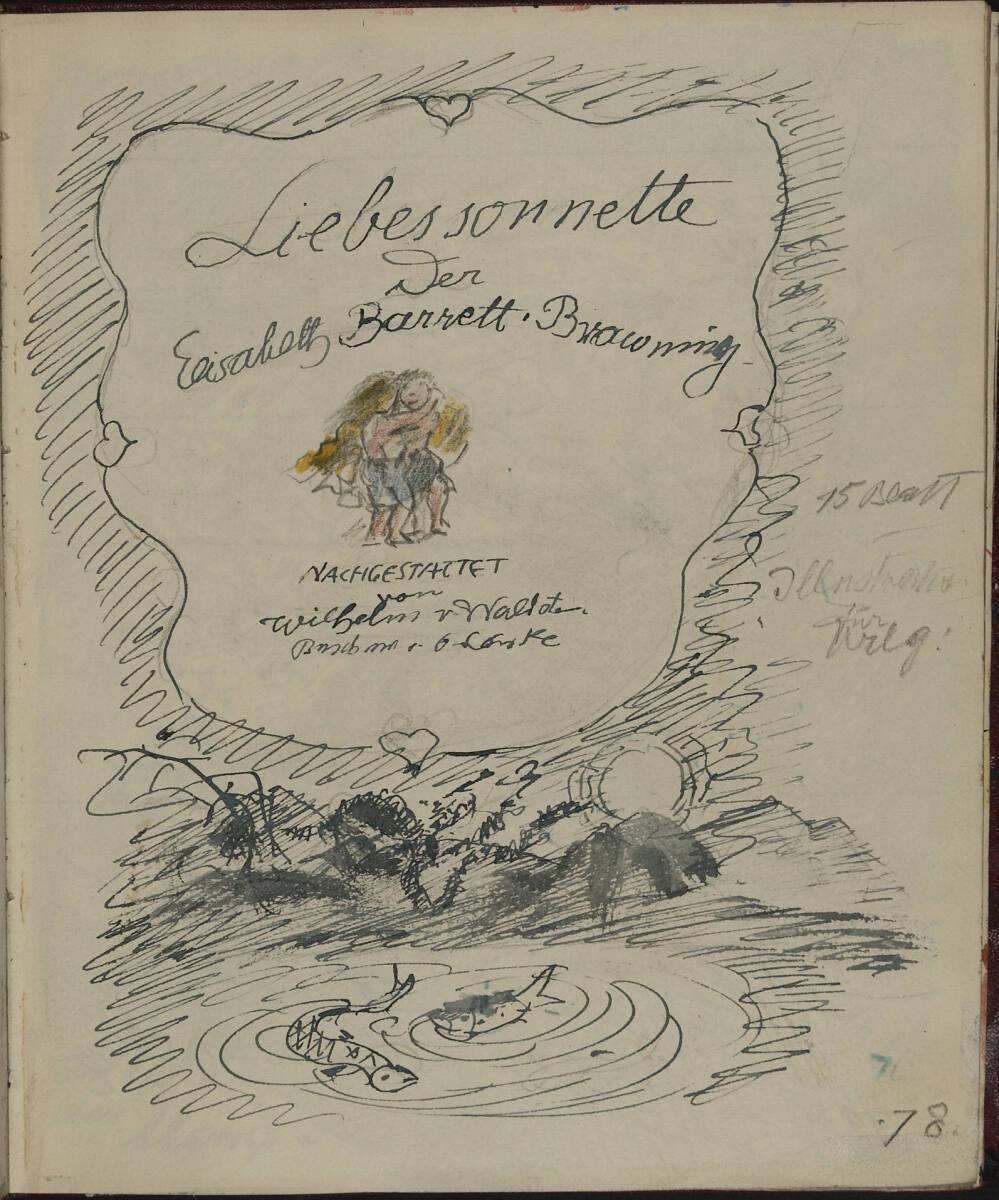 Liebessonnette
Der
Elisabeth Barrett-Brawning
NACHGESTALTET
von
Wilhelm v
15 Blatt
Illustration
für
Krieg!
78.